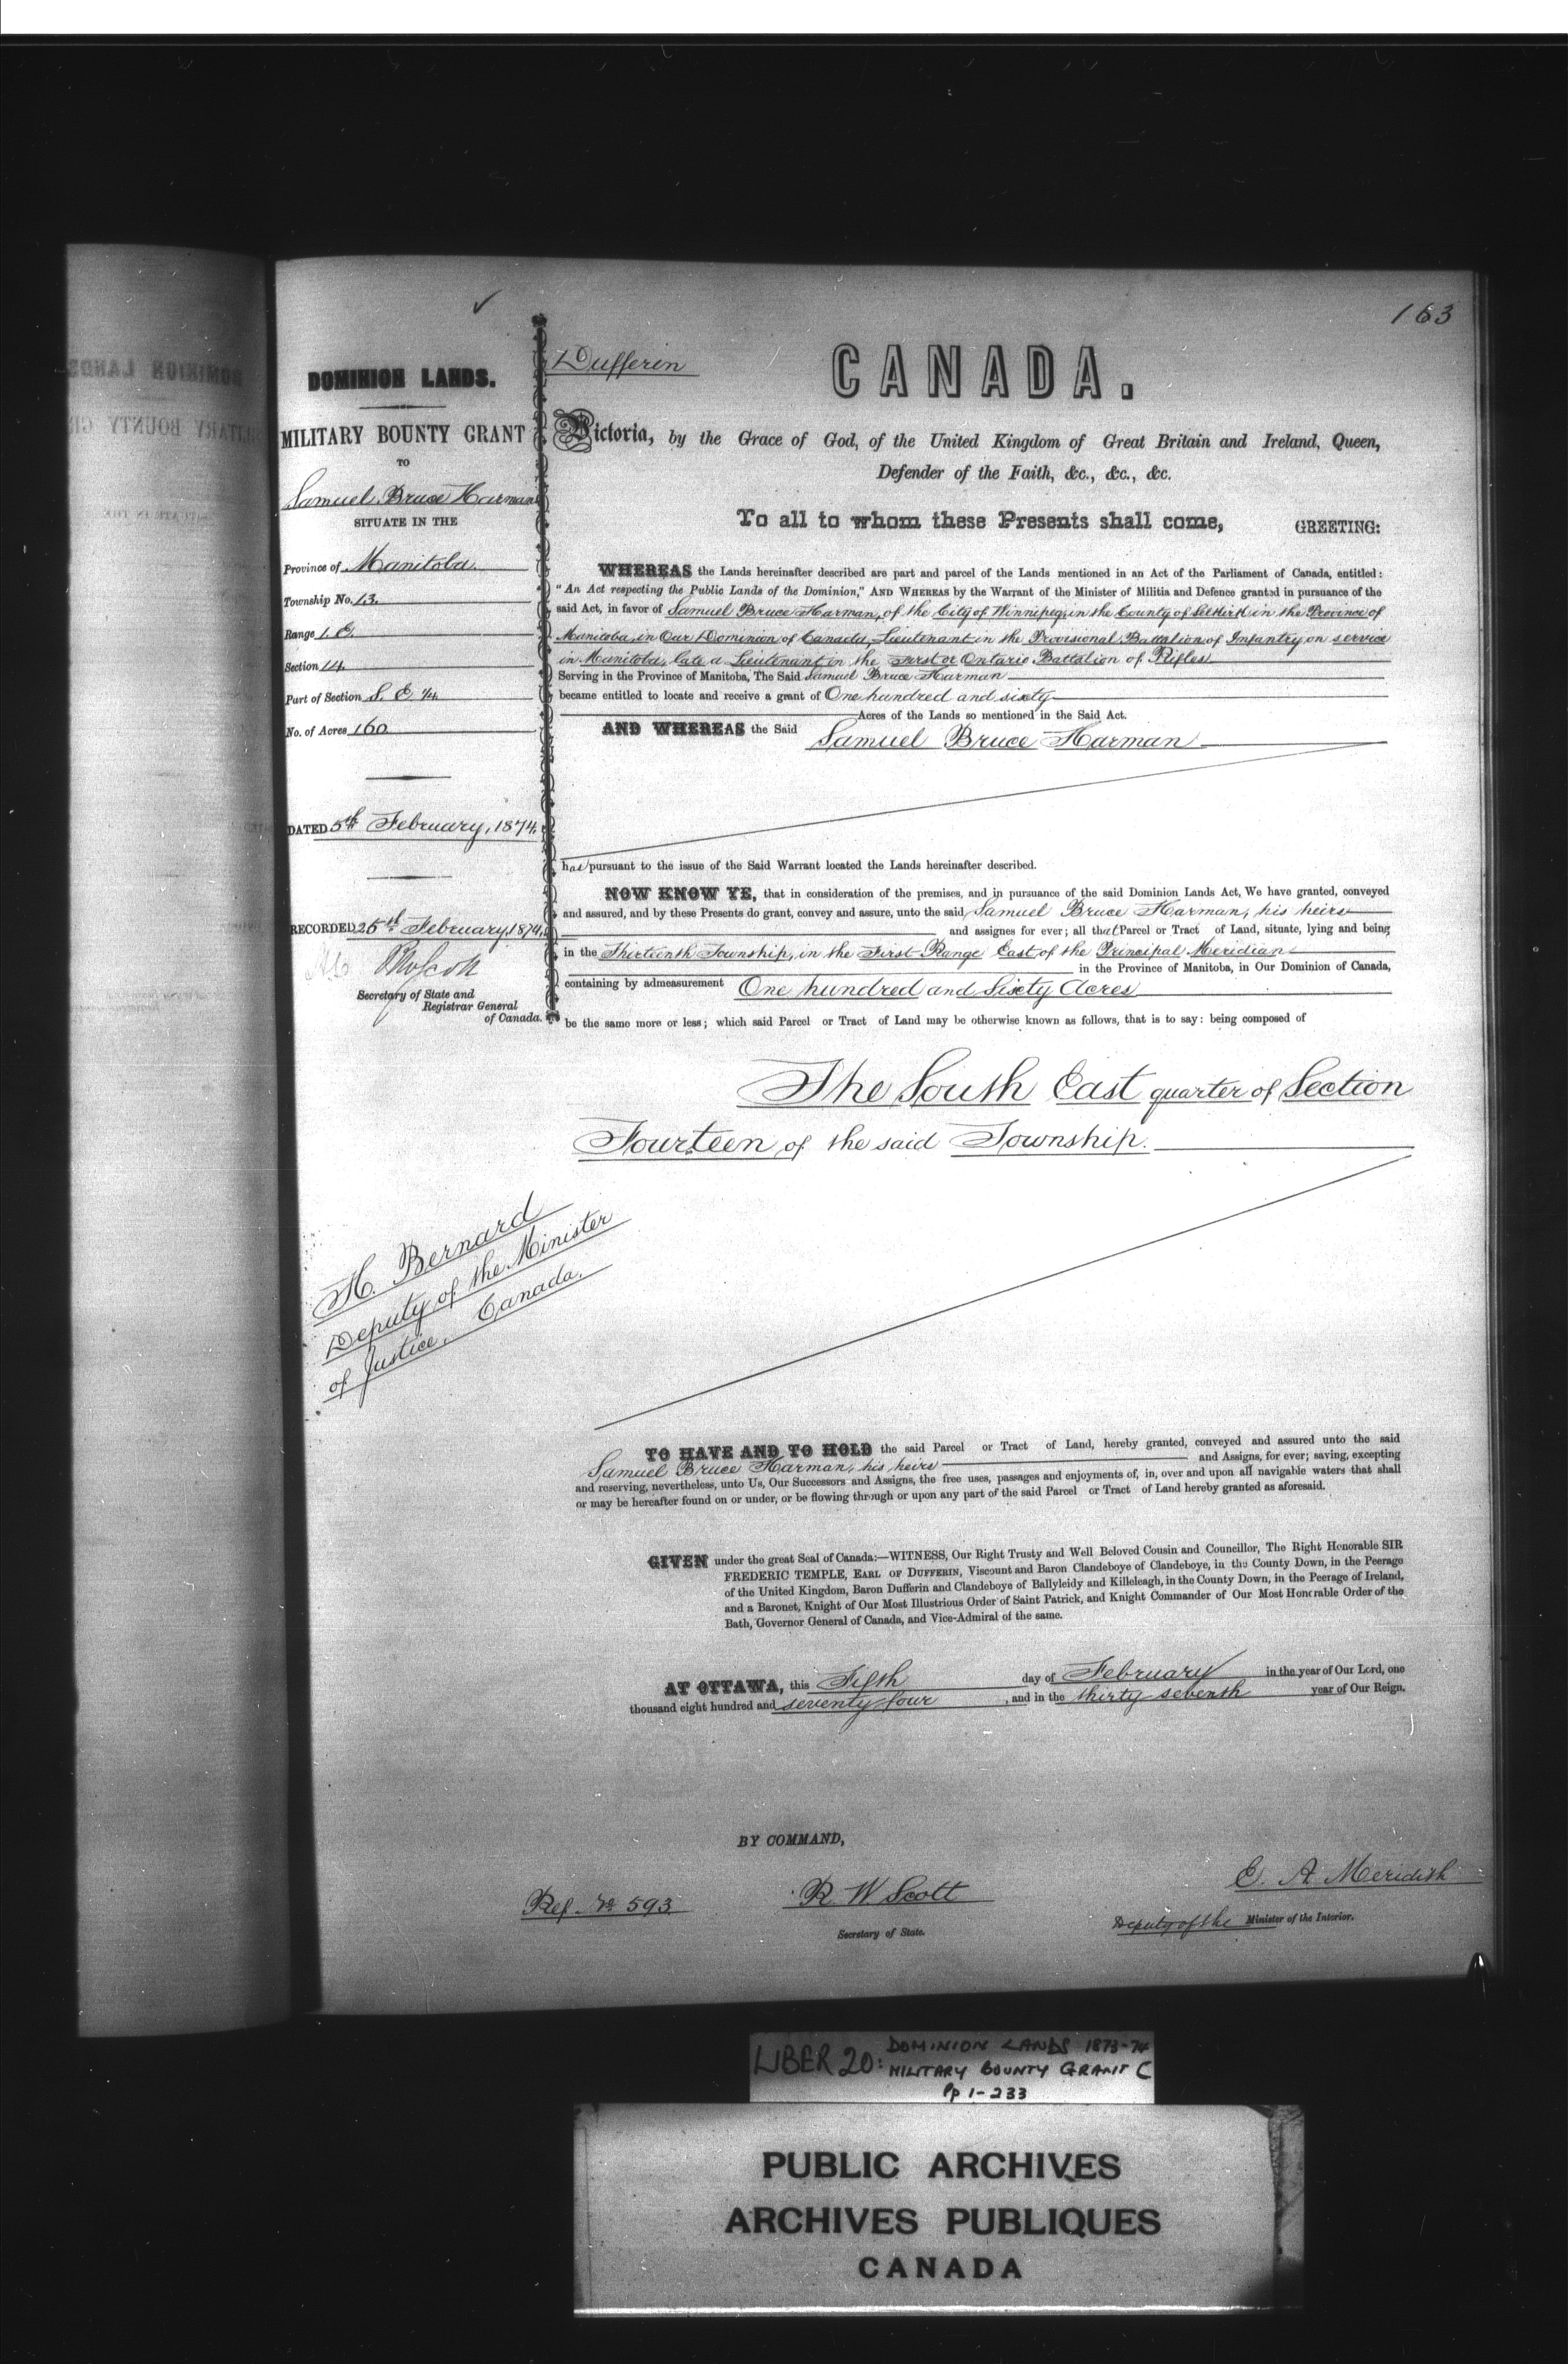 163
DOMINION LANDS.
MILITARY BOUNTY GRANT
TO
Samuel Bruce Harman
SITUATE IN THE
Province of Manitoba.
Township No. 13.
Range 1. E.
Section 14
Part of Section S. E. 1/4
No. of Acres 160
DATED 5th February, 1874.
RECORDED 25th February, 1874.
RWScott
Secretary of State and
Registrar General
of Canada.
Dufferin
CANADA.
Victoria, by the Grace of God, of the United Kingdom of Great Britain and Ireland, Queen,
Defender of the Faith, &c., &c., &c.
To all to whom these Presents shall come, GREETING:
WHEREAS the Lands hereinafter described are part and parcel of the Lands mentioned in an Act of the Parliament of Canada, entitled:
"An Act respecting the Public Lands of the Dominion," AND WHEREAS by the Warrant of the Minister of Militia and Defence granted in pursuance of the
said Act, in favor of Samuel Bruce Harman, of the City of Winnipeg, in the County of Selkirk in the Province of
Manitoba, in Our Dominion of Canada, Lieutenant in the Provisional Battalion of Infantry on service
in Manitoba, late a Lieutenant in the First or Ontario Battalion of Rifles
Serving in the Province of Manitoba, The Said Samuel Bruce Harman
became entitled to locate and receive a grant of One hundred and sixty
Acres of the Lands so mentioned in the Said Act.
AND WHEREAS the Said Samuel Bruce Harman
has pursuant to the issue of the Said Warrant located the Lands hereinafter described.
NOW KNOW YE, that in consideration of the premises, and in pursuance of the said Dominion Lands Act, We have granted, conveyed
and assured, and by these Presents do grant, convey and assure, unto the said Samuel Bruce Harman, his heirs
and assignes for ever; all that Parcel or Tract of Land, situate, lying and being
in the Thirteenth Township, in the First Range East of the Principal Meridian
in the Province of Manitoba, in Our Dominion of Canada,
containing by admeasurement One hundred and Sixty Acres
be the same more or less; which said Parcel or Tract of Land may be otherwise known as follows, that is to say: being composed of
The South East quarter of Section
Fourteen of the said Township.
H. Bernard
Deputy of the Minister
of Justice, Canada.
TO HAVE AND TO HOLD the said Parcel or Tract of Land, hereby granted, conveyed and assured unto the said
Samuel Bruce Harman, his heirs and Assigns, for ever; saving, excepting
and reserving, nevertheless, unto Us, Our Successors and Assigns, the free uses, passages and enjoyments of, in, over and upon all navigable waters that shall
or may be hereafter found on or under, or be flowing through or upon any part of the said Parcel or Tract of Land hereby granted as aforesaid.
GIVEN under the great Seal of Canada:—WITNESS, Our Right Trusty and Well Beloved Cousin and Councillor, The Right Honorable SIR
FREDERIC TEMPLE, EARL OF DUFFERIN, Viscount and Baron Clandeboye of Clandeboye, in the County Down, in the Peerage
of the United Kingdom, Baron Dufferin and Clandeboye of Ballyleidy and Killeleagh, in the County Down, in the Peerage of Ireland,
and a Baronet, Knight of Our Most Illustrious Order of Saint Patrick, and Knight Commander of Our Most Honorable Order of the
Bath, Governor General of Canada, and Vice-Admiral of the same.
AT OTTAWA, this Fifth day of February in the year of Our Lord, one
thousand eight hundred and seventy four, and in the thirty seventh year of Our Reign.
BY COMMAND,
Ref. No 593.
R. W. Scott
Secretary of State.
E. A. Meredith
Deputy of the Minister of the Interior.
LIBER 20: DOMINION LANDS 1873-74
MILITARY BOUNTY GRANT C
Pp 1-233
PUBLIC ARCHIVES
ARCHIVES PUBLIQUES
CANADA